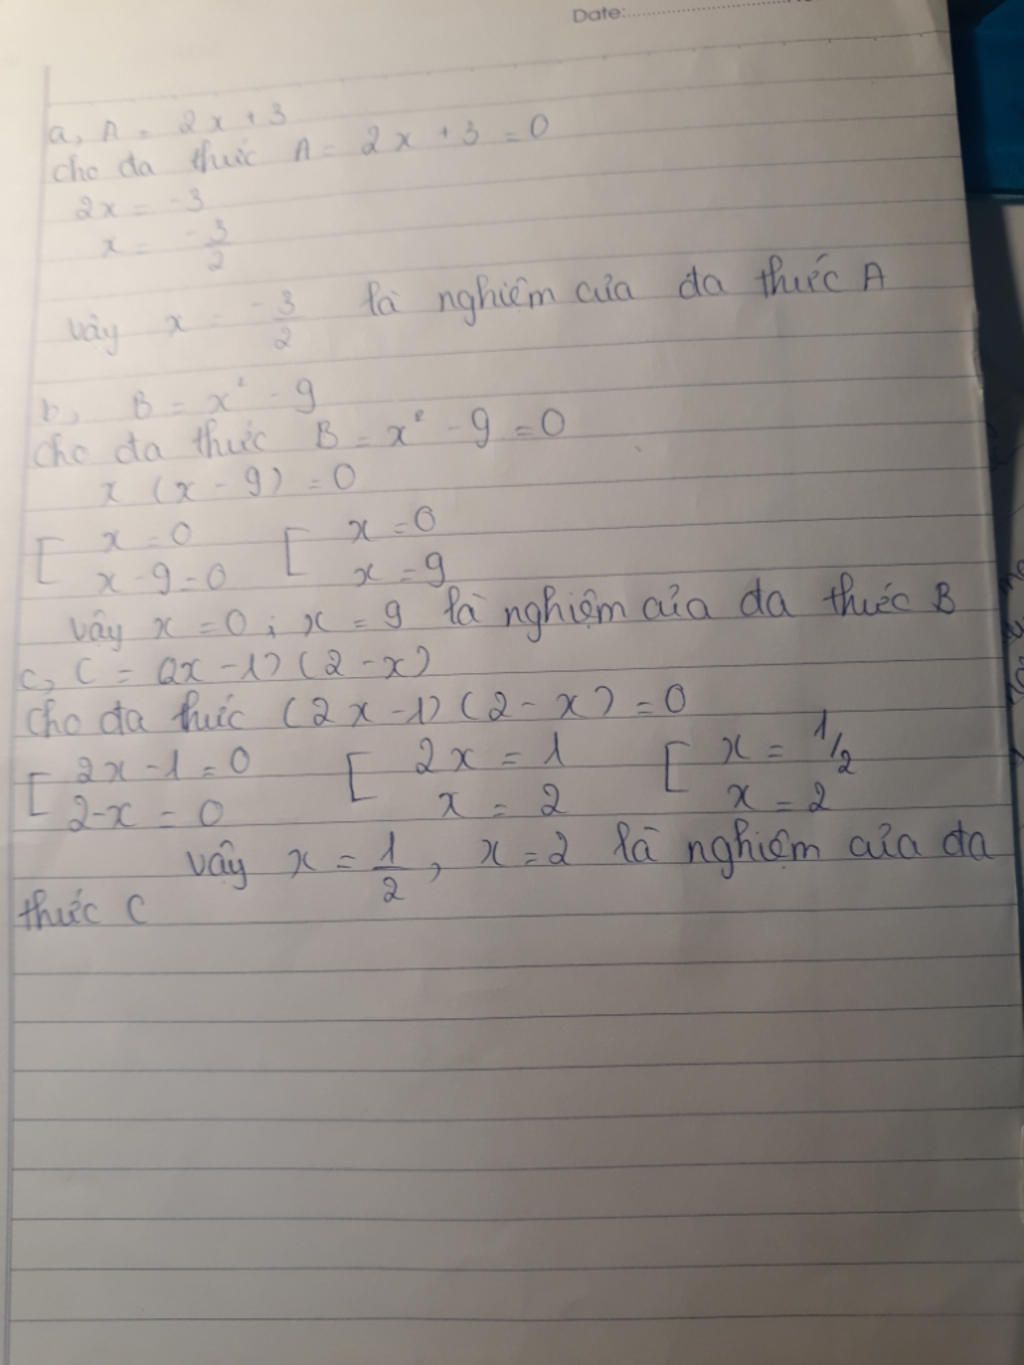 Date:
a, A = 2x + 3
cho đa thức A = 2x + 3 = 0
2x = -3
x = -3/2
vậy x = -3/2 là nghiệm của đa thức A
b, B = x² - 9
cho đa thức B = x² - 9 = 0
x (x - 9) = 0
[ x = 0 [ x = 0
x - 9 = 0 x = 9
vậy x = 0 ; x = 9 là nghiệm của đa thức B
c, C = (2x - 1) (2 - x)
cho đa thức (2x - 1) (2 - x) = 0
[ 2x - 1 = 0 [ 2x = 1 [ x = 1/2
2 - x = 0 x = 2 x = 2
vậy x = 1/2, x = 2 là nghiệm của đa
thức C